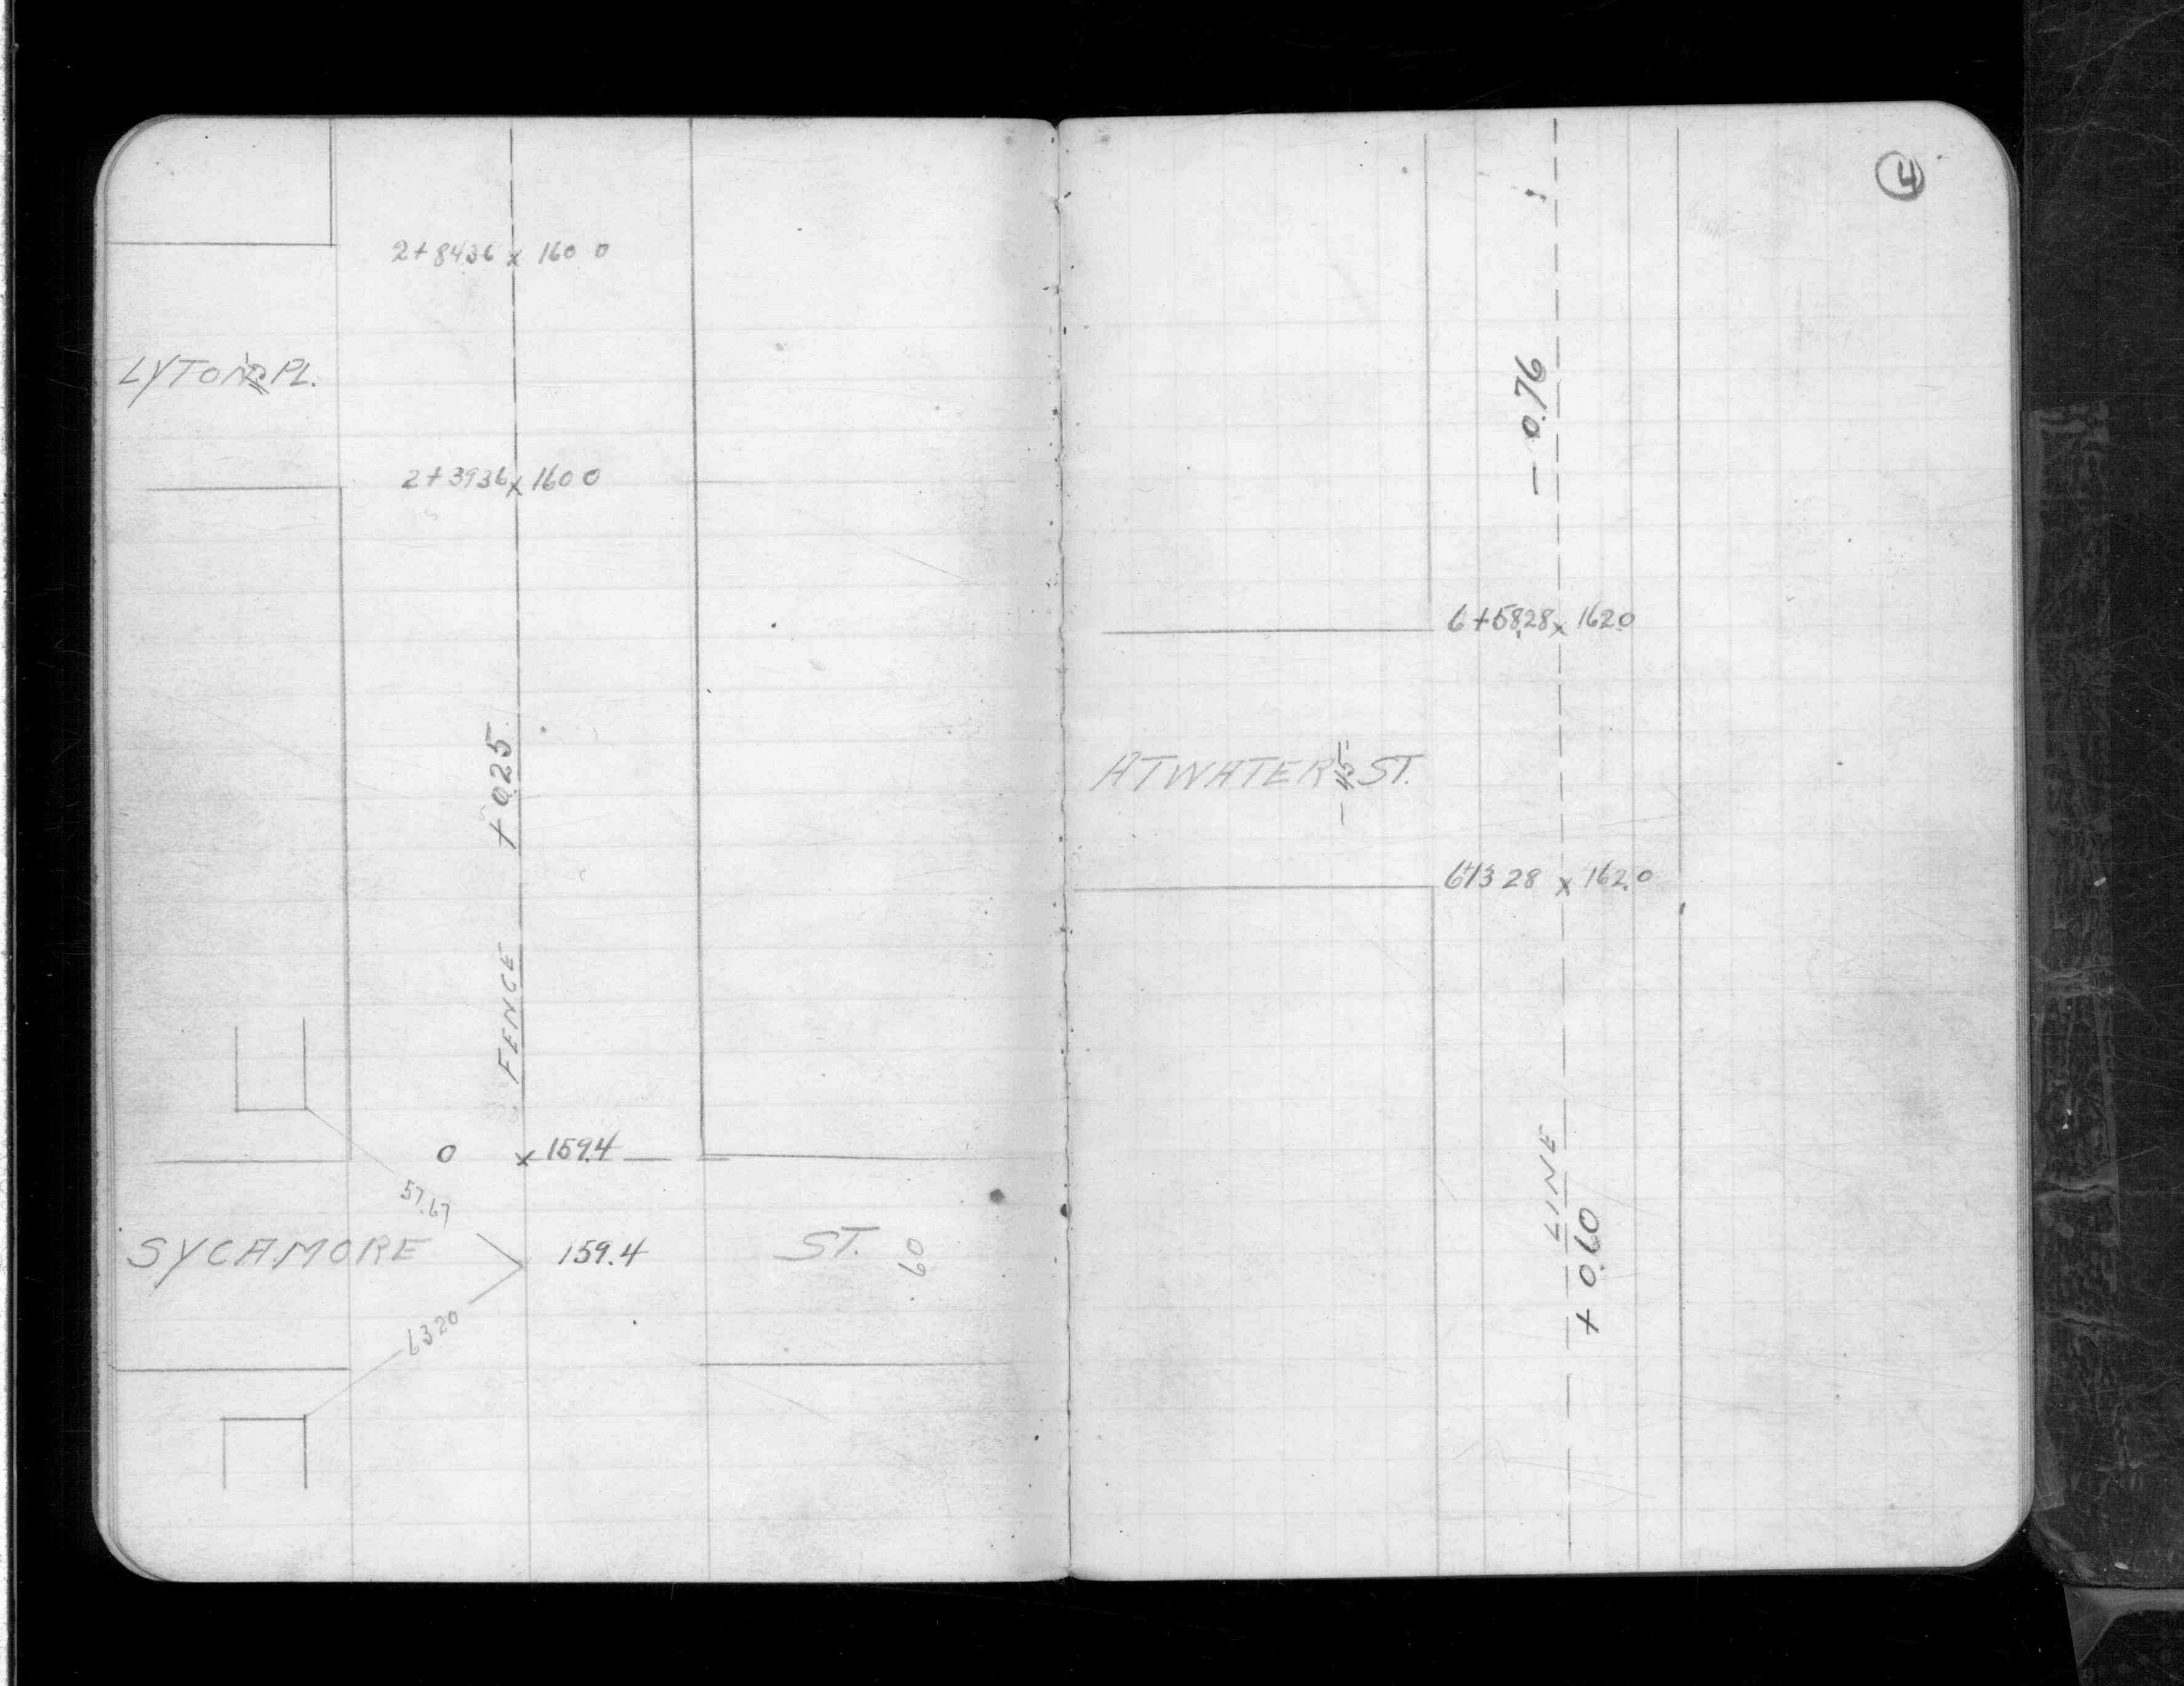 2+84.36 x 160 0
LYTON PL.
2+39.36 x 160 0
+ 0.25
FENCE
0 x 159.4
57.67
SYCAMORE 159.4 ST. 60
63.20
4
— 0.76
6+58.28 x 162.0
ATWATER ST.
45
6+13 28 x 162.0
LINE
+ 0.60